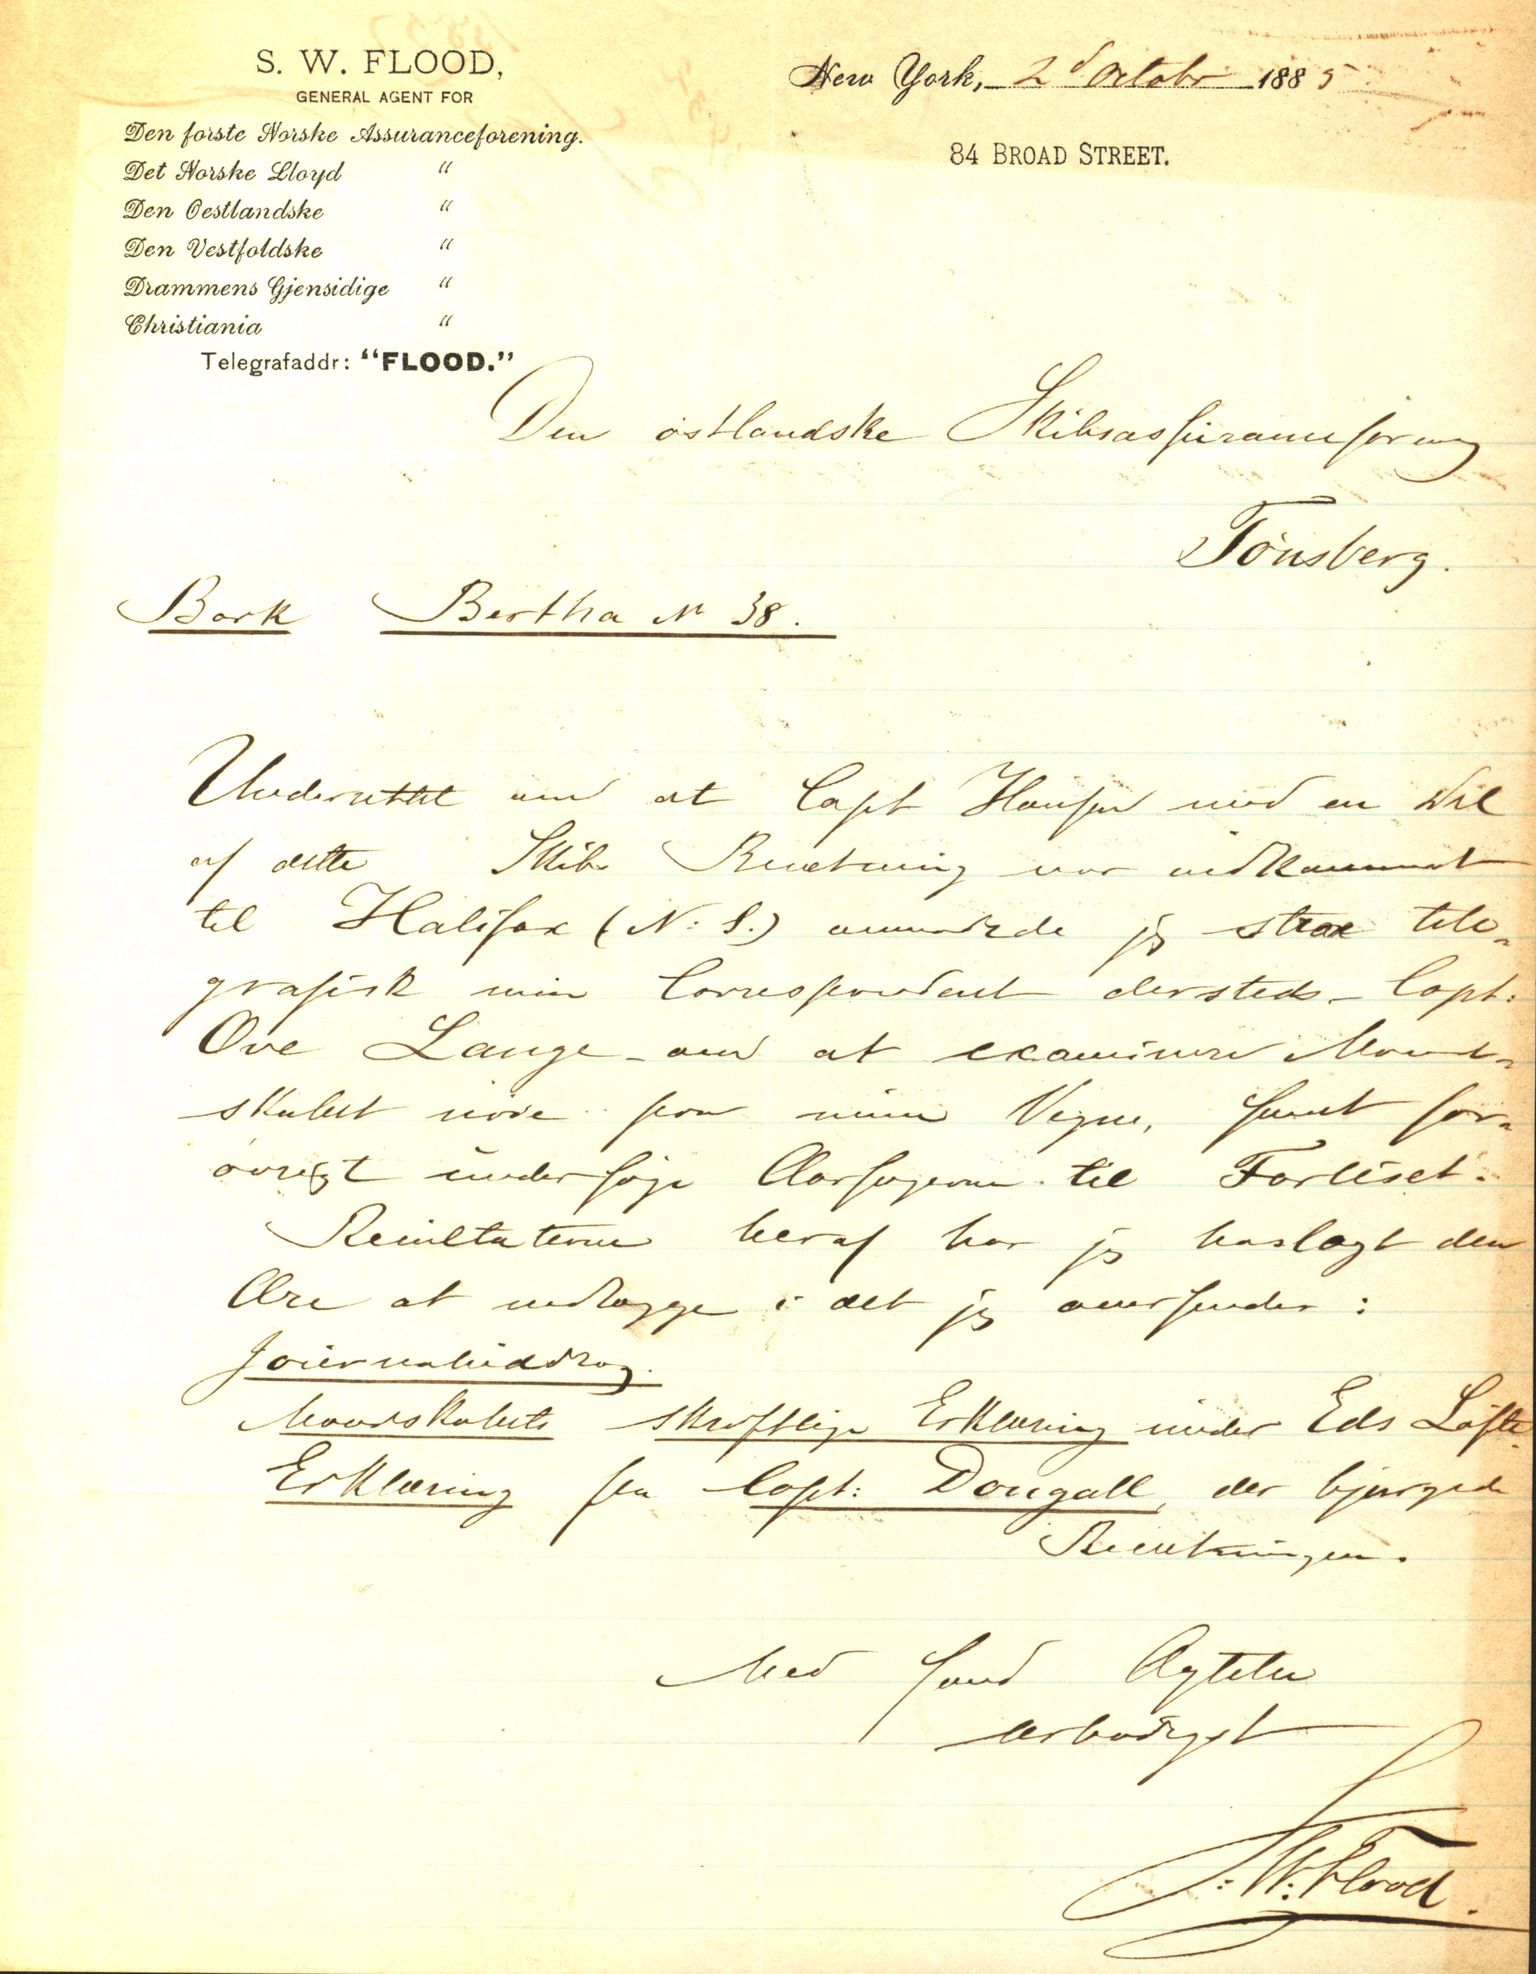 S. W. FLOOD,
GENERAL AGENT FOR
Den forste Norske Assuranceforening.
Det Norske Lloyd "
Den Oestlandske "
Den Vestfoldske "
Drammens Gjensidige "
Christiania "
Telegrafaddr: "FLOOD."
New York, 2d October 1885
84 BROAD STREET.
Den østlandske Skibsassuranceforening
Tønsberg.
Bark Bertha No 38.
Underrettet om at Capt Hansen med en Del
af dette Skibs Besætning var indkommet
til Halifax (N: S.) anmodede jeg strax tele-
grafisk min Correspondent dersteds - Capt:
Ove Lange - om at examinere Mand-
skabet nøie paa mine Vegne, samt for-
øvrigt undersøge Aarsagerne til Forliset.
Resultaterne heraf har jeg hoslagt den
Ære at vedlægge i det jeg oversender:
Journaluddrag.
Mandskabets skriftlige Erklæring under Eds Løfte
Erklæring fra Capt: Dougall, der bjergede
Besætningen.
Med sand Agtelse
ærbødigst
S: W: Flood.